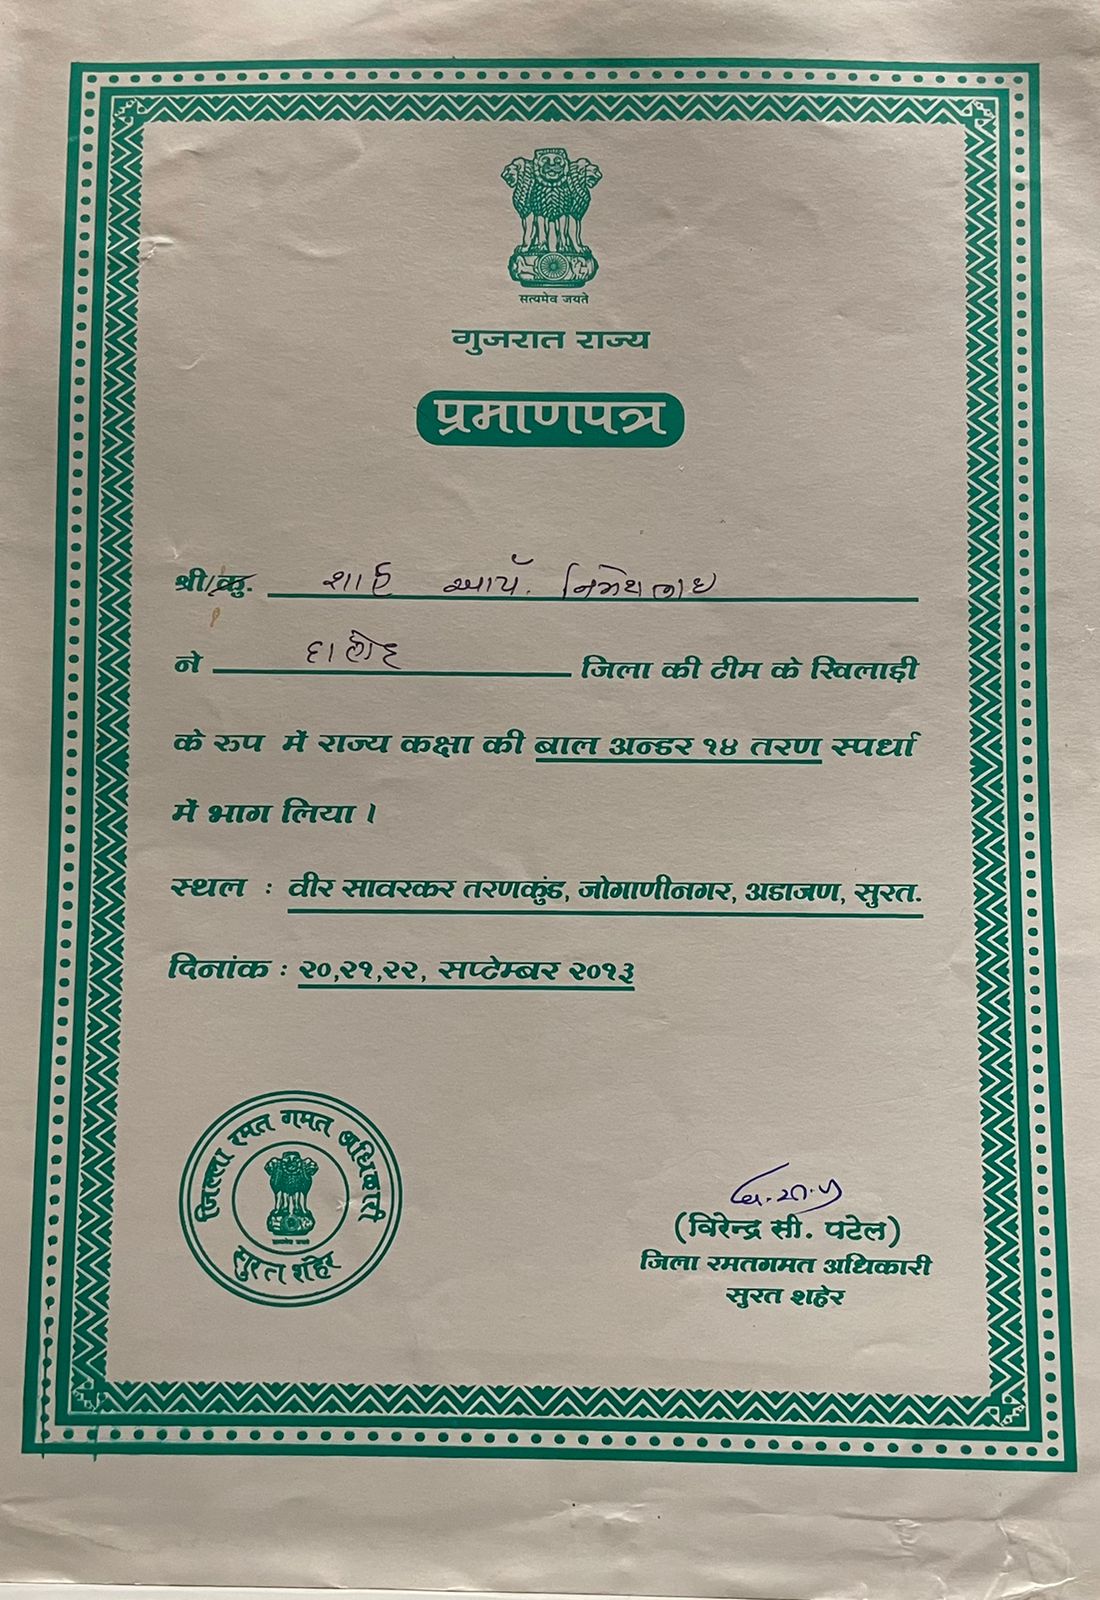 सत्यमेव जयते
गुजरात राज्य
प्रमाणपत्र
श्री/कु. शाह આર્ય. નિમેષભાઇ
ने દાહોદ जिला की टीम के खिलाड़ी
के रुप में राज्य कक्षा की बाल अन्डर १४ तरण स्पर्धा
में भाग लिया ।
स्थल : वीर सावरकर तरणकुंड, जोगाणीनगर, अडाजण, सुरत.
दिनांक : २०,२१,२२, सप्टेम्बर २०१३
जिल्ला रमत गमत अधिकारी
सुरत शहेर
(विरेन्द्र सी. पटेल)
जिला रमतगमत अधिकारी
सुरत शहेर